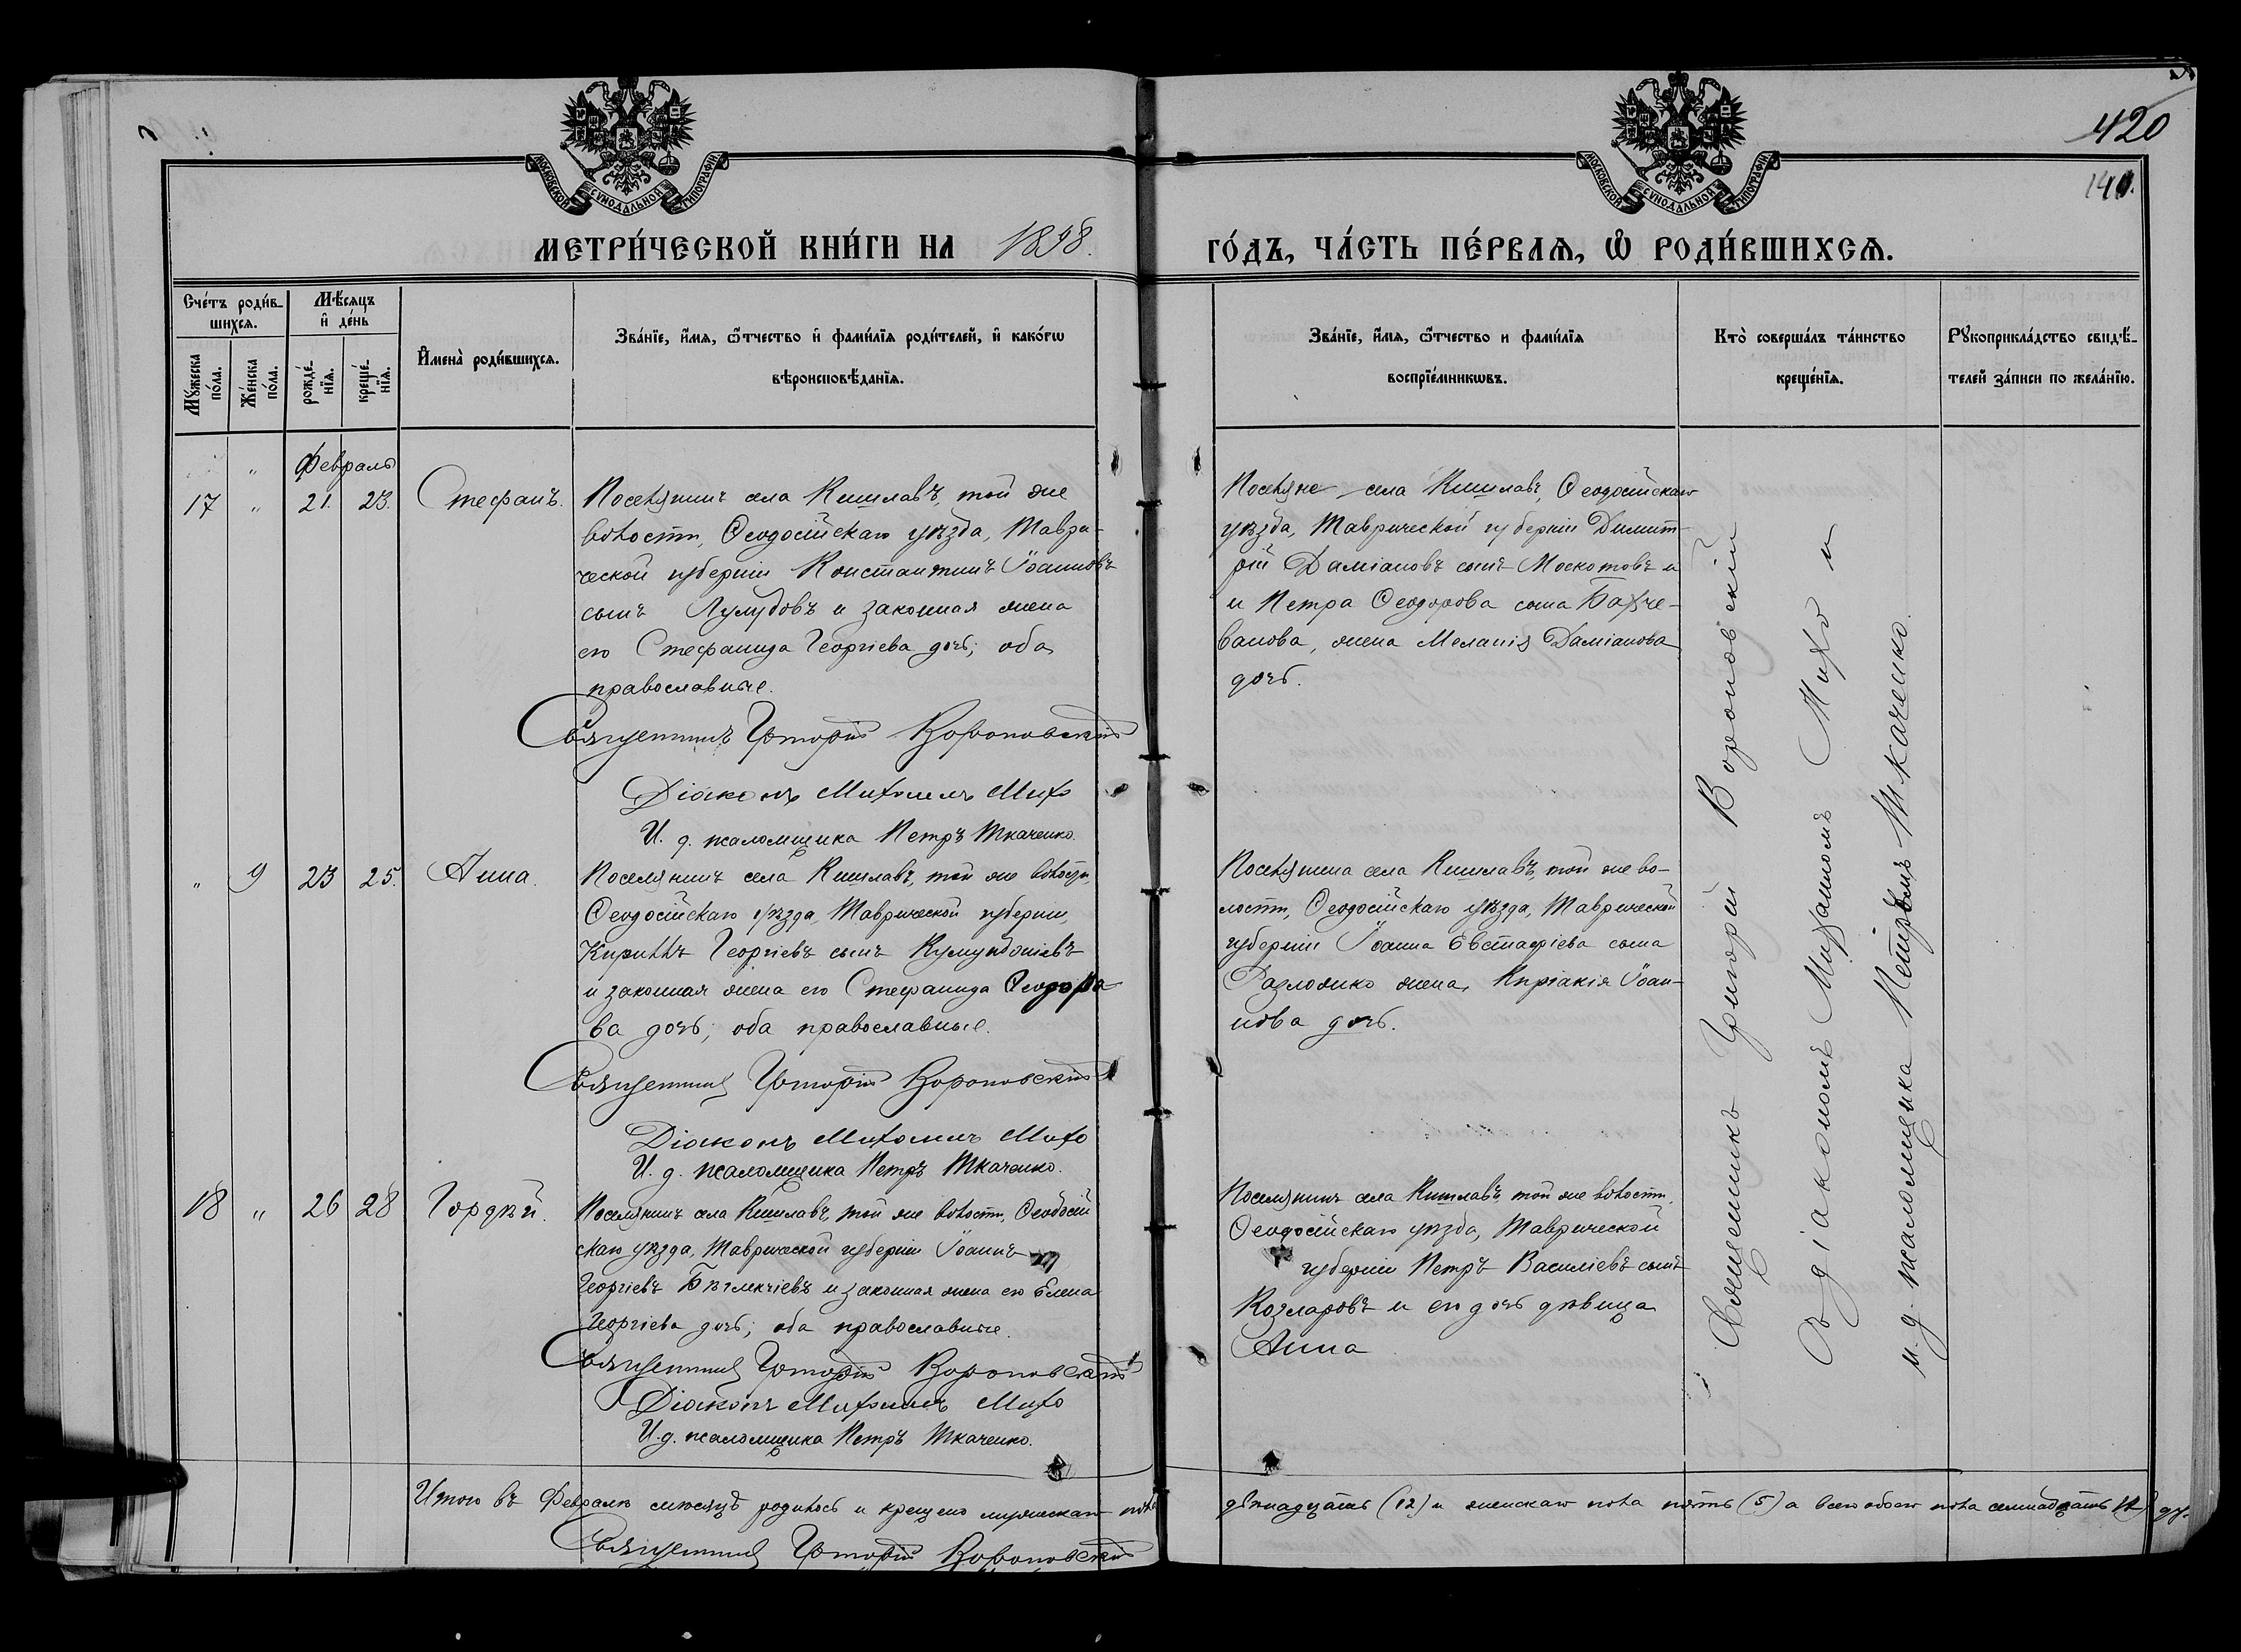 420
140.
МОСКОВСКОЙ СѴНОДАЛЬНОЙ ТИПОГРАФІИ
МОСКОВСКОЙ СѴНОДАЛЬНОЙ ТИПОГРАФІИ
МЕТРИ́ЧЕСКОЙ КНИ́ГИ НА 1898.
ГО́ДЪ, ЧА́СТЬ ПЕ́РВАѦ, Ѿ РОДИ́ВШИХСѦ.
Сче́тъ роди́в-
шихсѧ.
Мѣ́сѧцъ
и҆ де́нь
Мꙋжеска по́ла.
Же́нска по́ла.
рожде́-нїѧ.
креще́-нїѧ.
И҆мена̀ роди́вшихсѧ.
Зва́нїе, и҆́мѧ, ѻ҆́тчество и҆ фами́лїѧ роди́телей, и҆ како́гѡ
вѣроисповѣ́данїѧ.
Зва́нїе, и҆́мѧ, ѻ҆́тчество и фами́лїѧ
воспрїе́мникѡвъ.
Кто̀ соверша́лъ та́инство
креще́нїѧ.
Рꙋкоприкла́дство свидѣ́-
телей за́писи по жела́нїю.
Февраль
17 " 21. 23. Стефанъ.
Поселянинъ села Кишлавъ, той же
волости, Ѳеодосійскаго уѣзда, Таври-
ческой губерніи Константинъ Іоанновъ
сынъ Лулудовъ и законная жена
его Стефанида Георгіева дочь; оба
православные.
Священникъ Григорій Вороновскій
Діаконъ Михаилъ Михо
И. д. псаломщика Петръ Ткаченко.
Поселяне села Кишлавъ, Ѳеодосійскаго
уѣзда, Таврической губерніи Димит-
рій Даміановъ сынъ Москотовъ и
и Петра Ѳеодорова сына Бахче-
ванова, жена Меланія Даміанова
дочь.
" 9 23 25. Анна.
Поселянинъ села Кишлавъ, той же волости,
Ѳеодосійскаго уѣзда, Таврической губерніи,
Кириллъ Георгіевъ сынъ
и законная жена его Стефанида Ѳеодоро
ва дочь; оба православные.
Священникъ Григорій Вороновскій
Діаконъ Михаилъ Михо
И. д. псаломщика Петръ Ткаченко.
Поселянина села Кишлавъ, той же во-
лости, Ѳеодосійскаго уѣзда, Таврической
губерніи Іоанна Евстафіева сына
жена, Киріакія Іоан-
нова дочь.
18 " 26 28 Гордѣй.
Поселянинъ села Кишлавъ, той же волости, Ѳеодосій
скаго уѣзда, Таврической губерніи Іоаннъ
Георгіевъ и законная жена его Елена
Георгіева дочь; оба православные.
Священникъ Григорій Вороновскій
Діаконъ Михаилъ Михо
И. д. псаломщика Петръ Ткаченко.
Поселянинъ села Кишлавъ той же волости,
Ѳеодосійскаго уѣзда, Таврической
губерніи Петръ Василіевъ сынъ
Козларовъ и его дочь дѣвица
Анна
Священникъ Григорій Вороновскій
съ діакономъ Михаиломъ Михо и
и. д. псаломщика Петромъ Ткаченко.
Итого въ Февралѣ мѣсяцѣ родилось и крещено мужескаго пола двѣнадцать (12) и женскаго пола пять (5) а всего обоего пола семнадцать (17) ду.
Священникъ Григорій Вороновскій